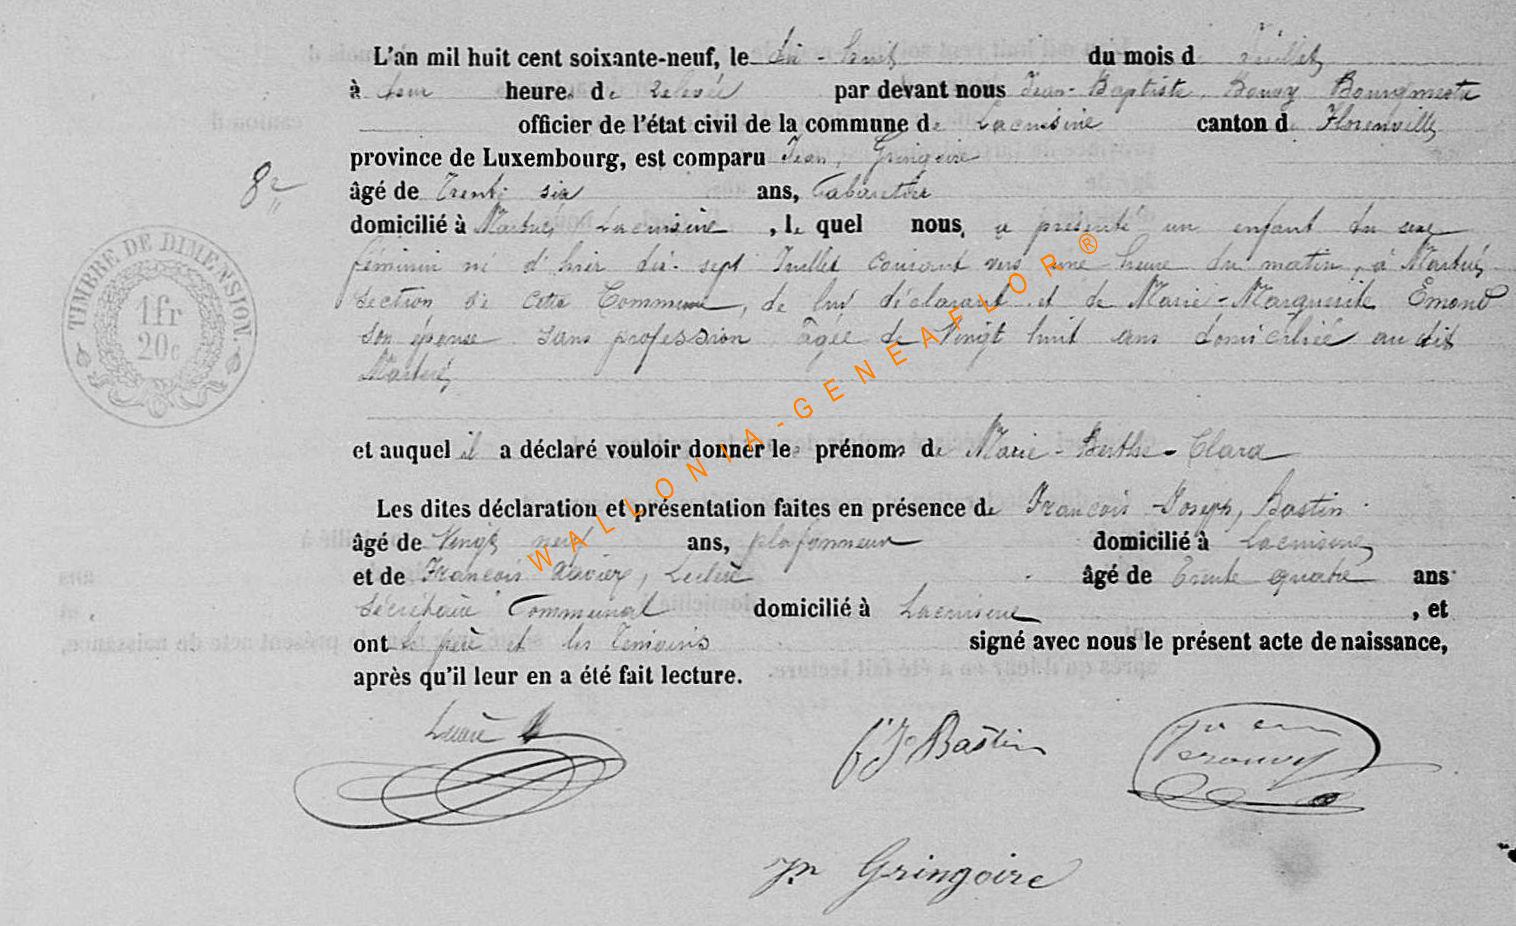 L'an mil huit cent soixante-neuf, le dix-huit du mois de Juillet
à deux heures de relevée par devant nous Jean-Baptiste Bourgmestre
officier de l'état civil de la commune de Lacuisine canton de Florenville
province de Luxembourg, est comparu Jean, Gringoire
8
âgé de trente six ans, Cabaretier
domicilié à Martué Lacuisine, lequel nous, a présenté un enfant du sexe
féminin né d'hier dix-sept Juillet courant vers une heure du matin, à Martué,
section de cette Commune, de lui déclarant et de Marie-Marguerite Émond
son épouse sans profession âgée de Vingt huit ans domiciliée au dit
Martué,
TIMBRE DE DIMENSION.
1fr
20c
et auquel il a déclaré vouloir donner les prénoms de Marie-Berthe-Clara
Les dites déclaration et présentation faites en présence de François-Joseph, Bastin
âgé de Vingt neuf ans, plafonneur domicilié à Lacuisine,
et de François Xavier, âgé de trente quatre ans
secrétaire Communal domicilié à Lacuisine, et
ont le père et les témoins signé avec nous le présent acte de naissance,
après qu'il leur en a été fait lecture.
Bastin
Jn Gringoire
WALLONIA-GENEAFLOR®